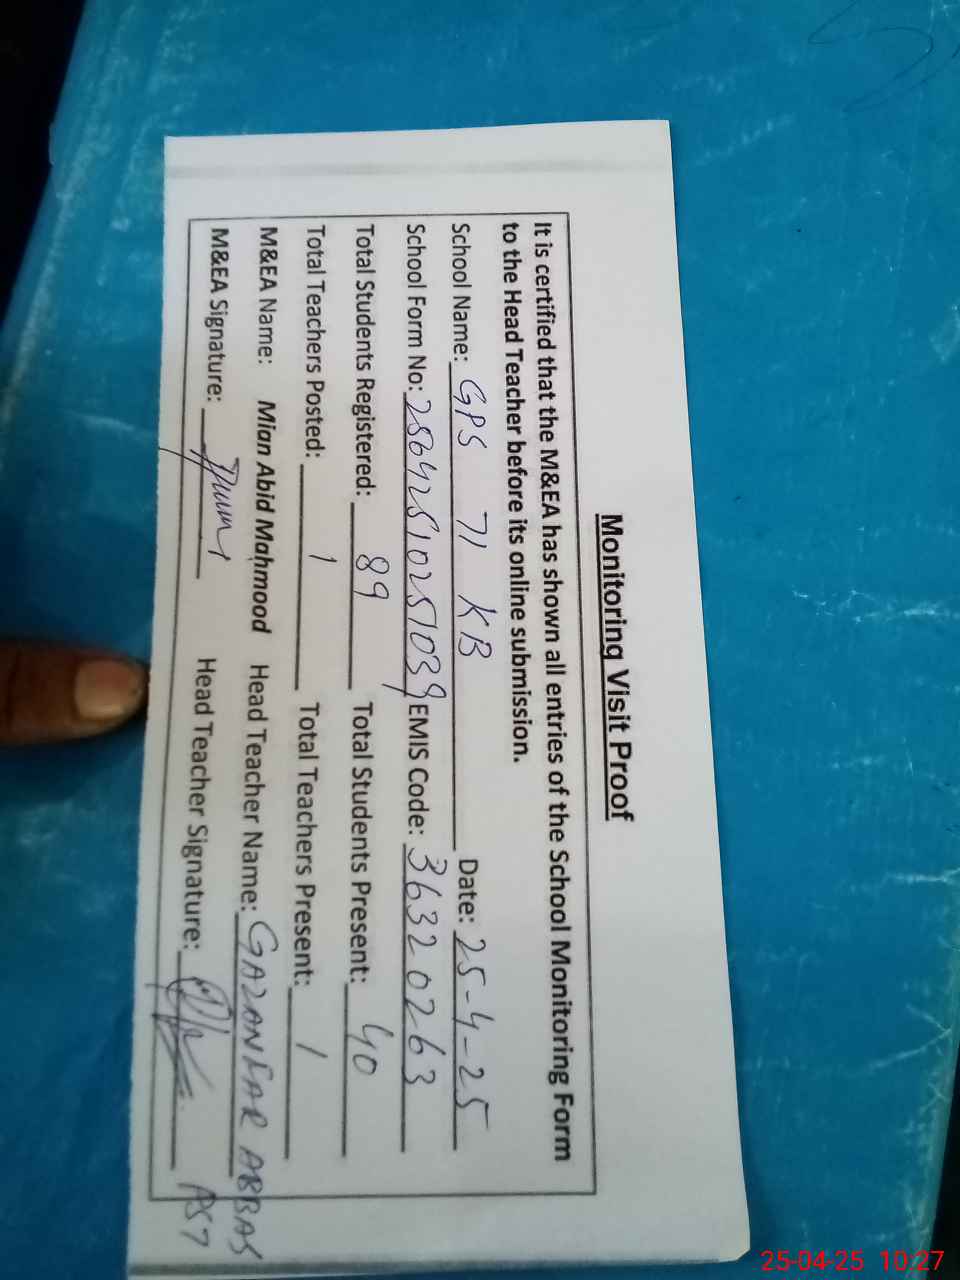 Monitoring Visit Proof
It is certified that the M&EA has shown all entries of the School Monitoring Form
to the Head Teacher before its online submission.
School Name: GPS 71 KB Date: 25-4-25
School Form No: 25642510251039 EMIS Code: 36320263
Total Students Registered: 89 Total Students Present: 40
Total Teachers Posted: 1 Total Teachers Present: 1
M&EA Name: Mian Abid Mahmood Head Teacher Name: GAZANFAR ABBAS
M&EA Signature: Head Teacher Signature: PST
25-04-25 10:27